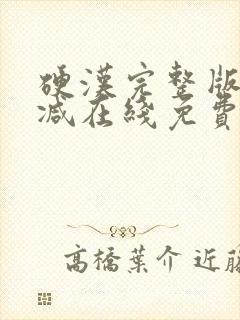 硬漢完整版
減在綫免費
高橋葉介 近藤